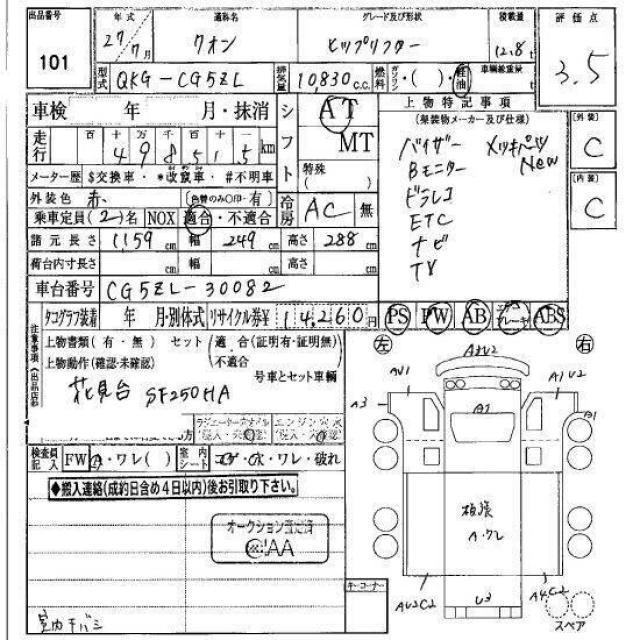 出品番号 年式 通称名 グレード及び形状 積載量 評価点
101 27/7月 クオン ヒップリフター 12.8t 3.5
型式 QKG-CG5ZL 排気量 10,830 c.c. 燃料 ガソリン・( )・軽油 車輌総重量 t
車検 年 月・抹消 シフト AT MT 上物特記事項
(架装物メーカー及び仕様)
走行 百 十 万 千 百 十 一
498515 km
メーター歴 $交換車・*改竄車・#不明車 特殊( )
バイザー メッキパーツ New
Bモニター
ドラレコ
ETC
ナビ
TV
[外装] C
[内装] C
外装色 赤 (色替のみ○印・有) 冷房 AC 無
乗車定員(2)名 NOX 適合・不適合
諸元長さ 1159cm 幅 249cm 高さ 288cm
荷台内寸長さ cm 幅 cm 高さ cm
車台番号 CG5ZL-30082
タコグラフ装着 年 月・別体式 リサイクル券¥ 14,260円 PS PW AB ブレーキ ABS
注意事項(出品店記
上物書類(有・無) セット(適合(証明有・証明無) 不適合)
上物動作(確認・未確認) 号車とセット車輌
花見台 SF250HA
検査員記入 FW A・ワレ( ) 室内シート コゲ・穴・ワレ・破れ
◆搬入連絡(成約日含め4日以内)後お引取り下さい。
オークション査定済
CIAA
キーコーナー
室内キバミ
左 右
AU2
AU1 A1U2
A3 A1 A1
板張
A・ワレ
AU2C2 U3 A4C2
スペア